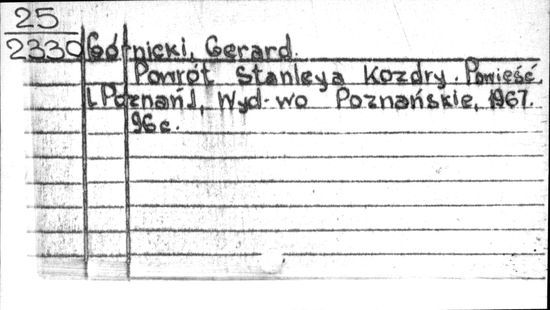 25
2330 Górnicki, Gerard.
Powrót Stanleya Kozdry. Powieść.
[Poznań], Wyd-wo Poznańskie, 1967.
96 c.